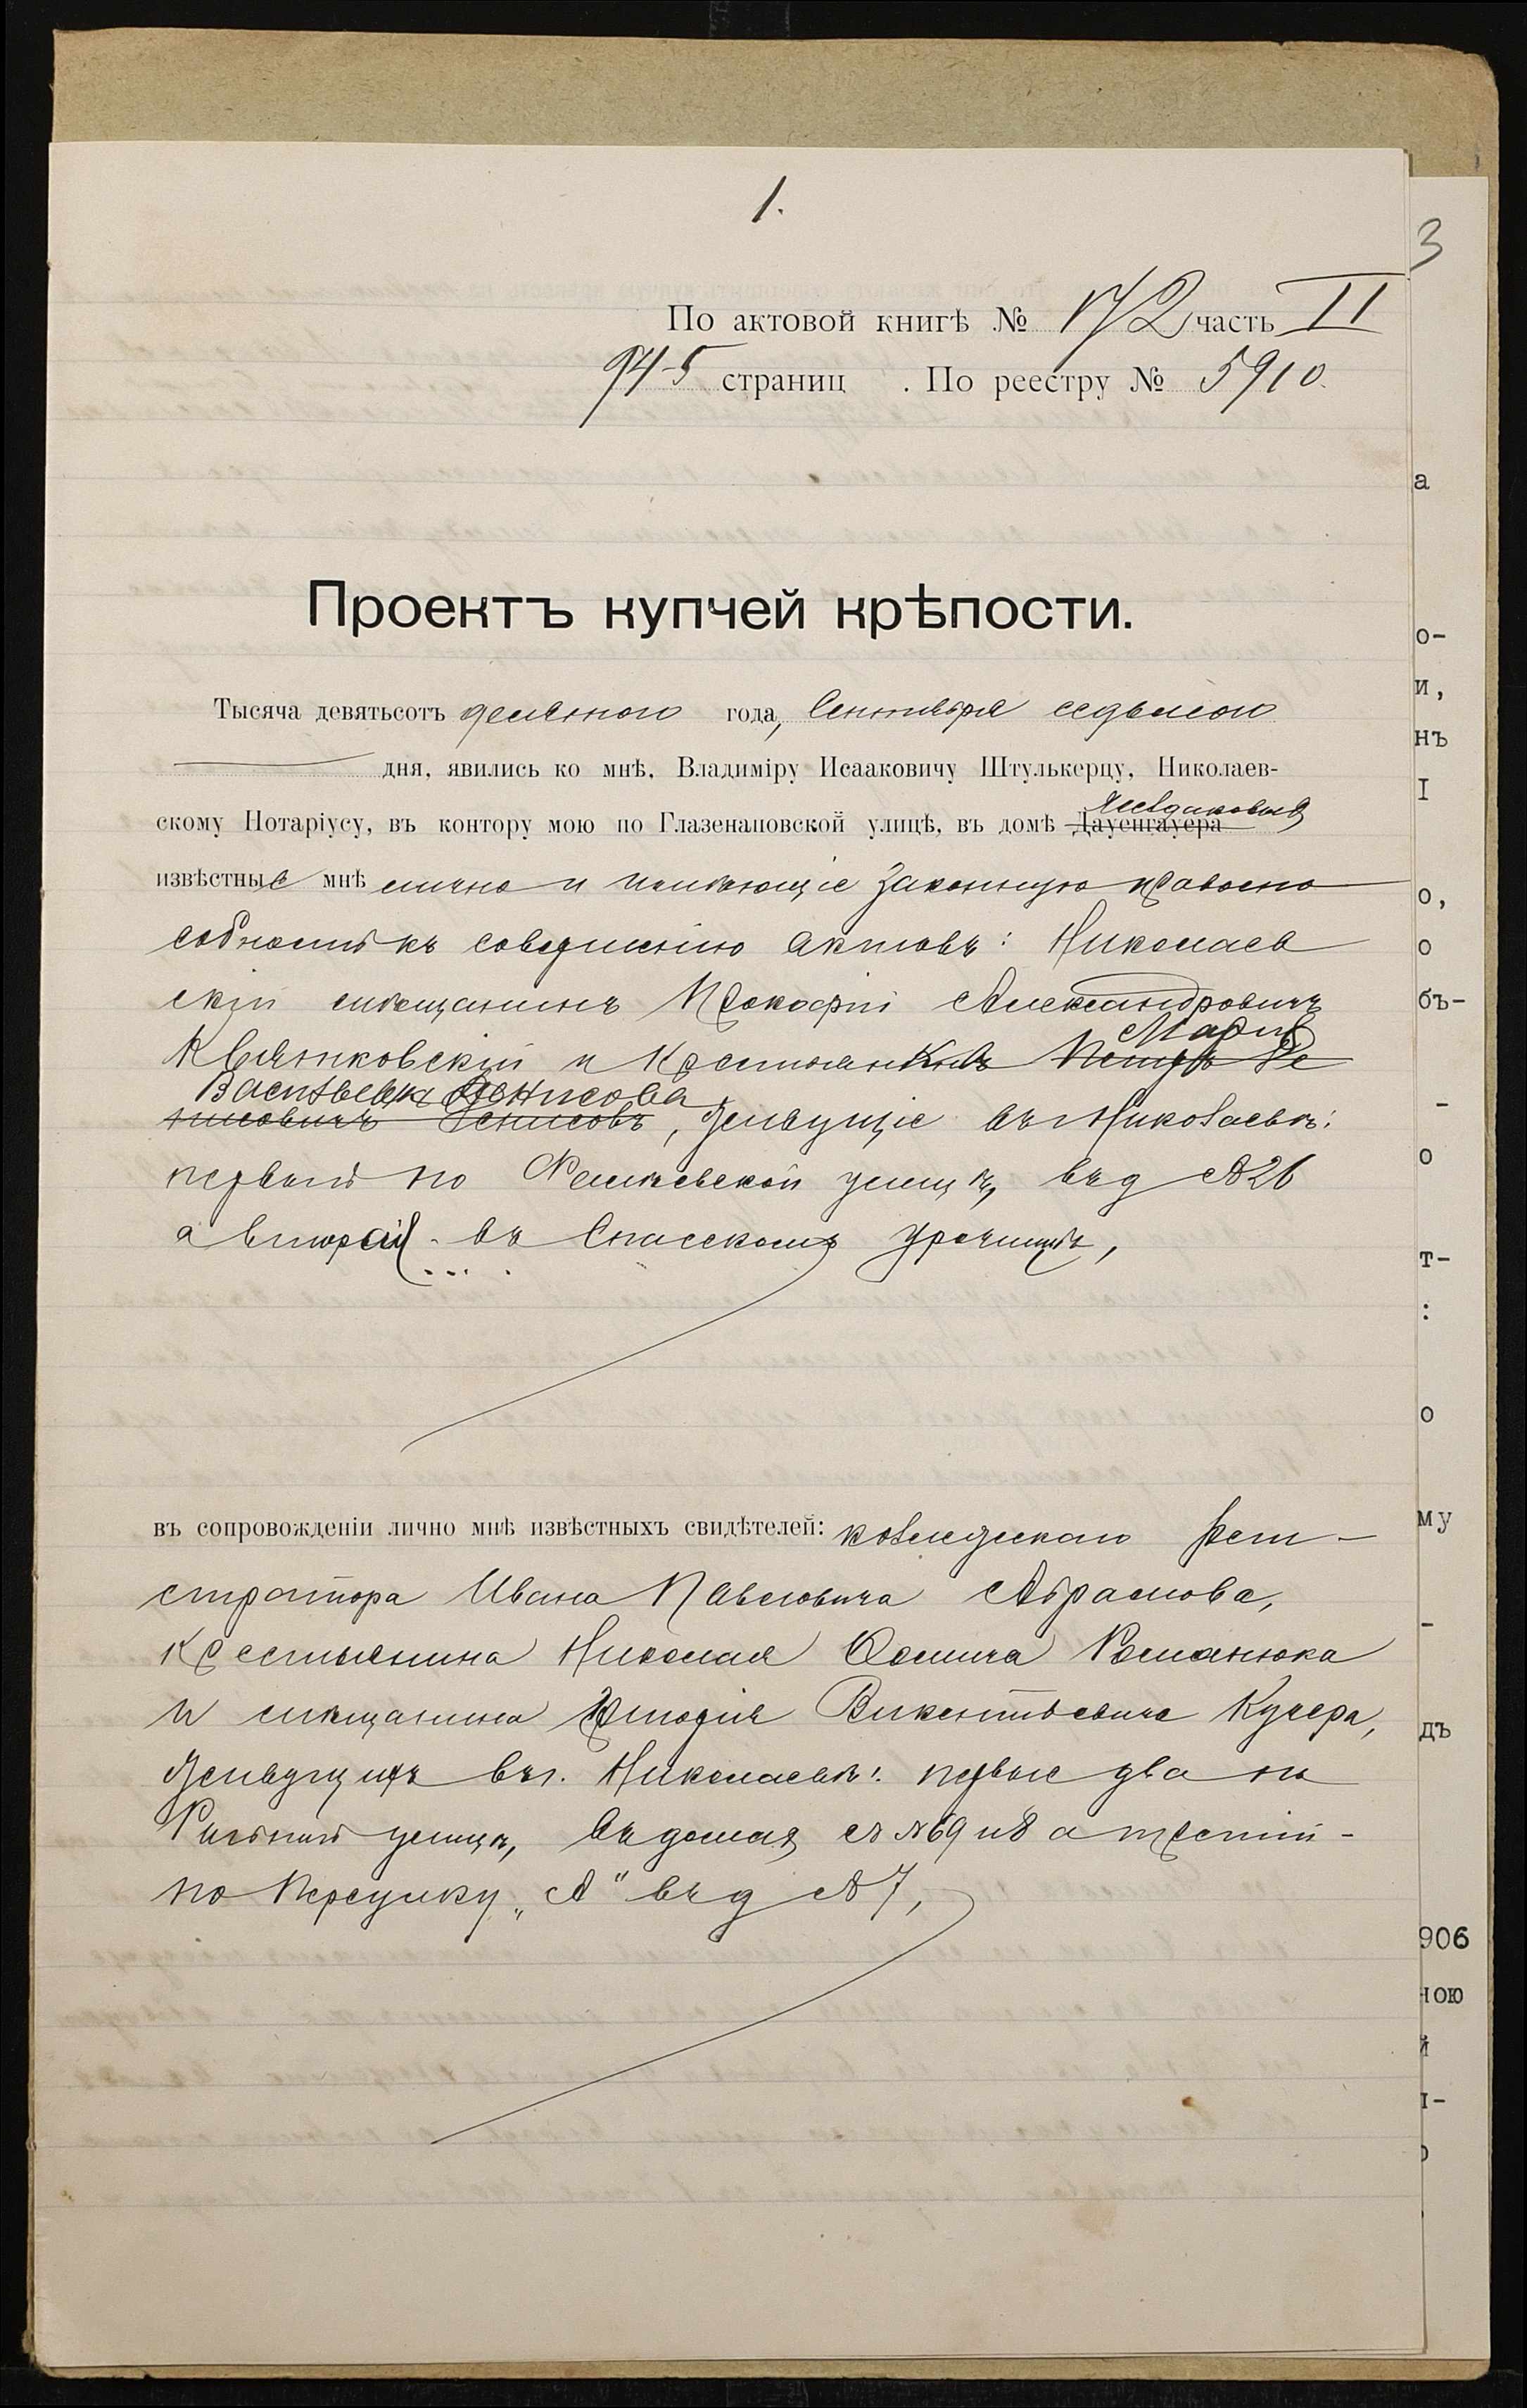 1.
3
По актовой книгѣ № 172 часть II
94-5 страниц . По реестру № 5910.
Проектъ купчей крѣпости.
Тысяча девятьсотъ девятого года, Сентября седьмого
дня, явились ко мнѣ, Владиміру Исааковичу Штулькерцу, Николаев-
скому Нотаріусу, въ контору мою по Глазенаповской улицѣ, въ домѣ Дауенгауера
извѣстные мнѣ лично и имѣющіе законную правоспо
собность къ совершенію актовъ: Николаев
скій мѣщанинъ Прокофій Александровичъ
Квятковскій и Крестьянка Петръ Де Марія
Васильевна Денисова
нисовичъ Денисовъ, живущіе въ Николаевѣ:
первый по улицѣ, въ д №26
а вторая - въ Спасскомъ урочищѣ,
въ сопровожденіи лично мнѣ извѣстныхъ свидѣтелей: коллежскаго реги-
стратора Ивана Павловича Абрамова,
крестьянина Николая Фомича Романюка
и мѣщанина Викентьевича Кучера,
живущихъ въ г. Николаевѣ: первые два по
улицѣ, въ домахъ съ №69 и 8 а третій -
по переулку „А" въ д №7,
а
о-
и,
нъ
I
о,
о
бъ-
-
о
т-
:
о
му
-
дъ
906
ною
й